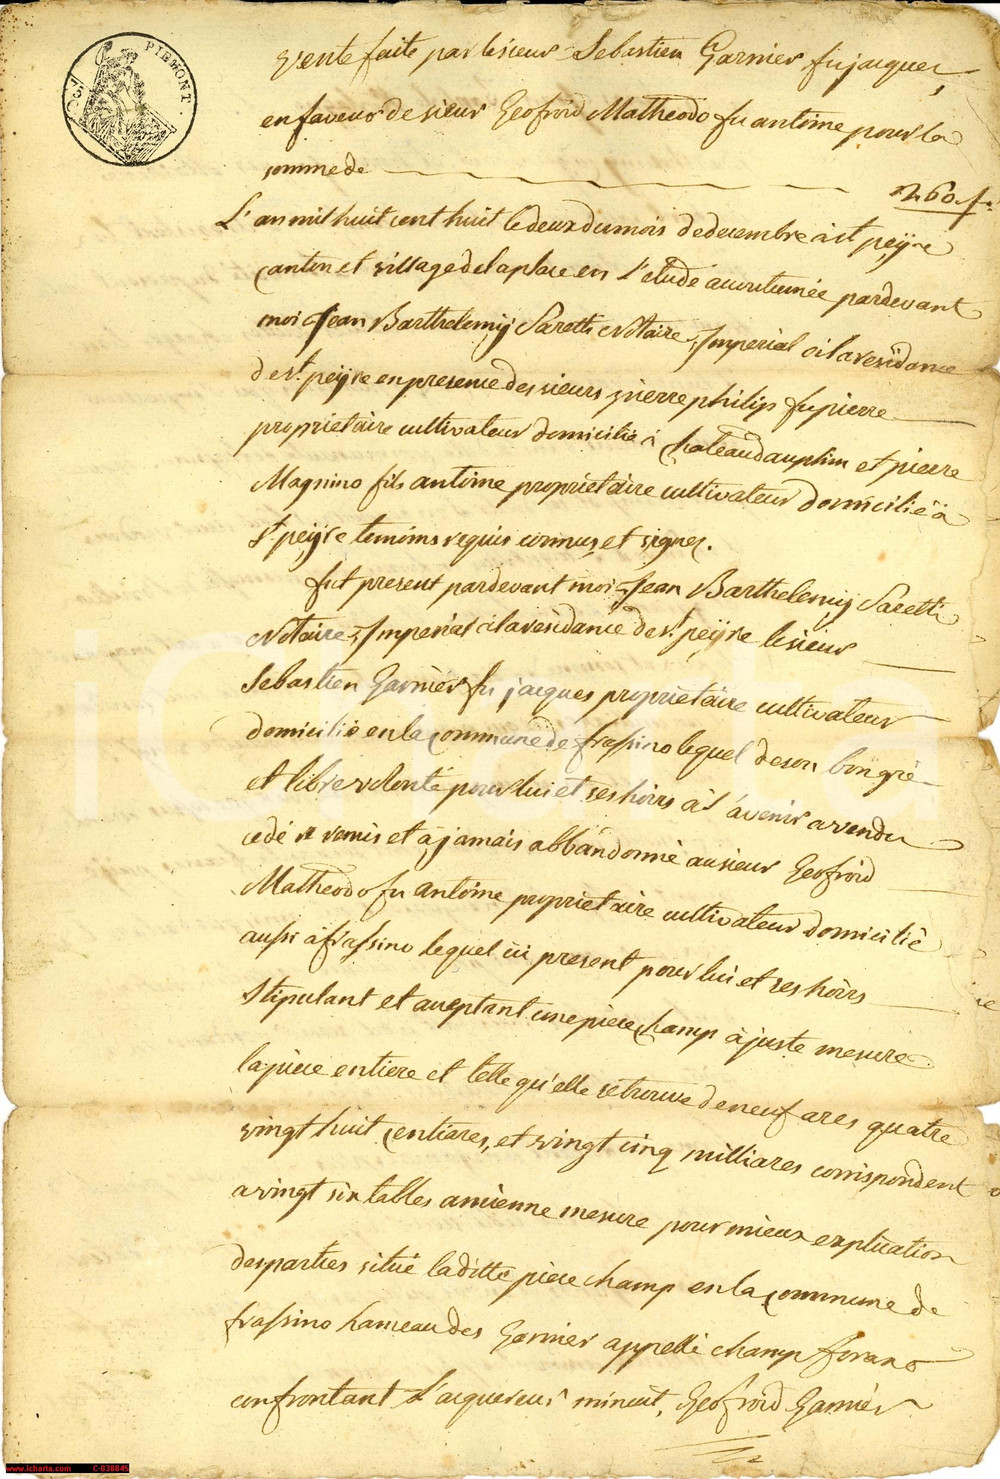 PIEMONT.
75 C
Vente faite par le sieur Sebastien Garnier fu jacques,
en faveur de sieur Geofroid Matheodo fu antoine pour la
somme de 260 f.
L'an mil huit cent huit le deux du mois de decembre à st peÿre
canton et village de la place en l'etude accoutumée pardevant
moi Jean Barthelemÿ Notaire Imperial à la residance
de st. peÿre en presence des sieurs pierre philip fu pierre
proprietaire cultivateur domicilié à chateaudauphin et pierre
Magnino fils antoine proprietaire cultivateur domicilié à
st peÿre temoins requis connus, et signés.
fut present pardevant moi Jean Barthelemÿ
Notaire Imperial à la residance de st. peÿre le sieur
Sebastien Garnier fu jacques proprietaire cultivateur
domicilié en la commune de frassino lequel de son bon gré
et libre volonté pour lui et ses hoirs à l'avenir a vendu
cedé et remis et à jamais abbandonné au sieur Geofroid
Matheodo fu antoine proprietaire cultivateur domicilié
aussi à frassino lequel ici present pour lui et ses hoirs
stipulant et acceptant une piece champ à juste mesure
la piece entiere et telle qu'elle se trouve de neuf ares quatre
vingt huit centiares, et vingt cinq milliares correspondent
a vingt six tables ancienne mesure pour mieux explication
des parties situé la ditte piece champ en la commune de
frassino hameau des Garnier appellé champ forano
confrontant l'acquereur minuit, Geofroid Garnier
www.icharta.com C-038845